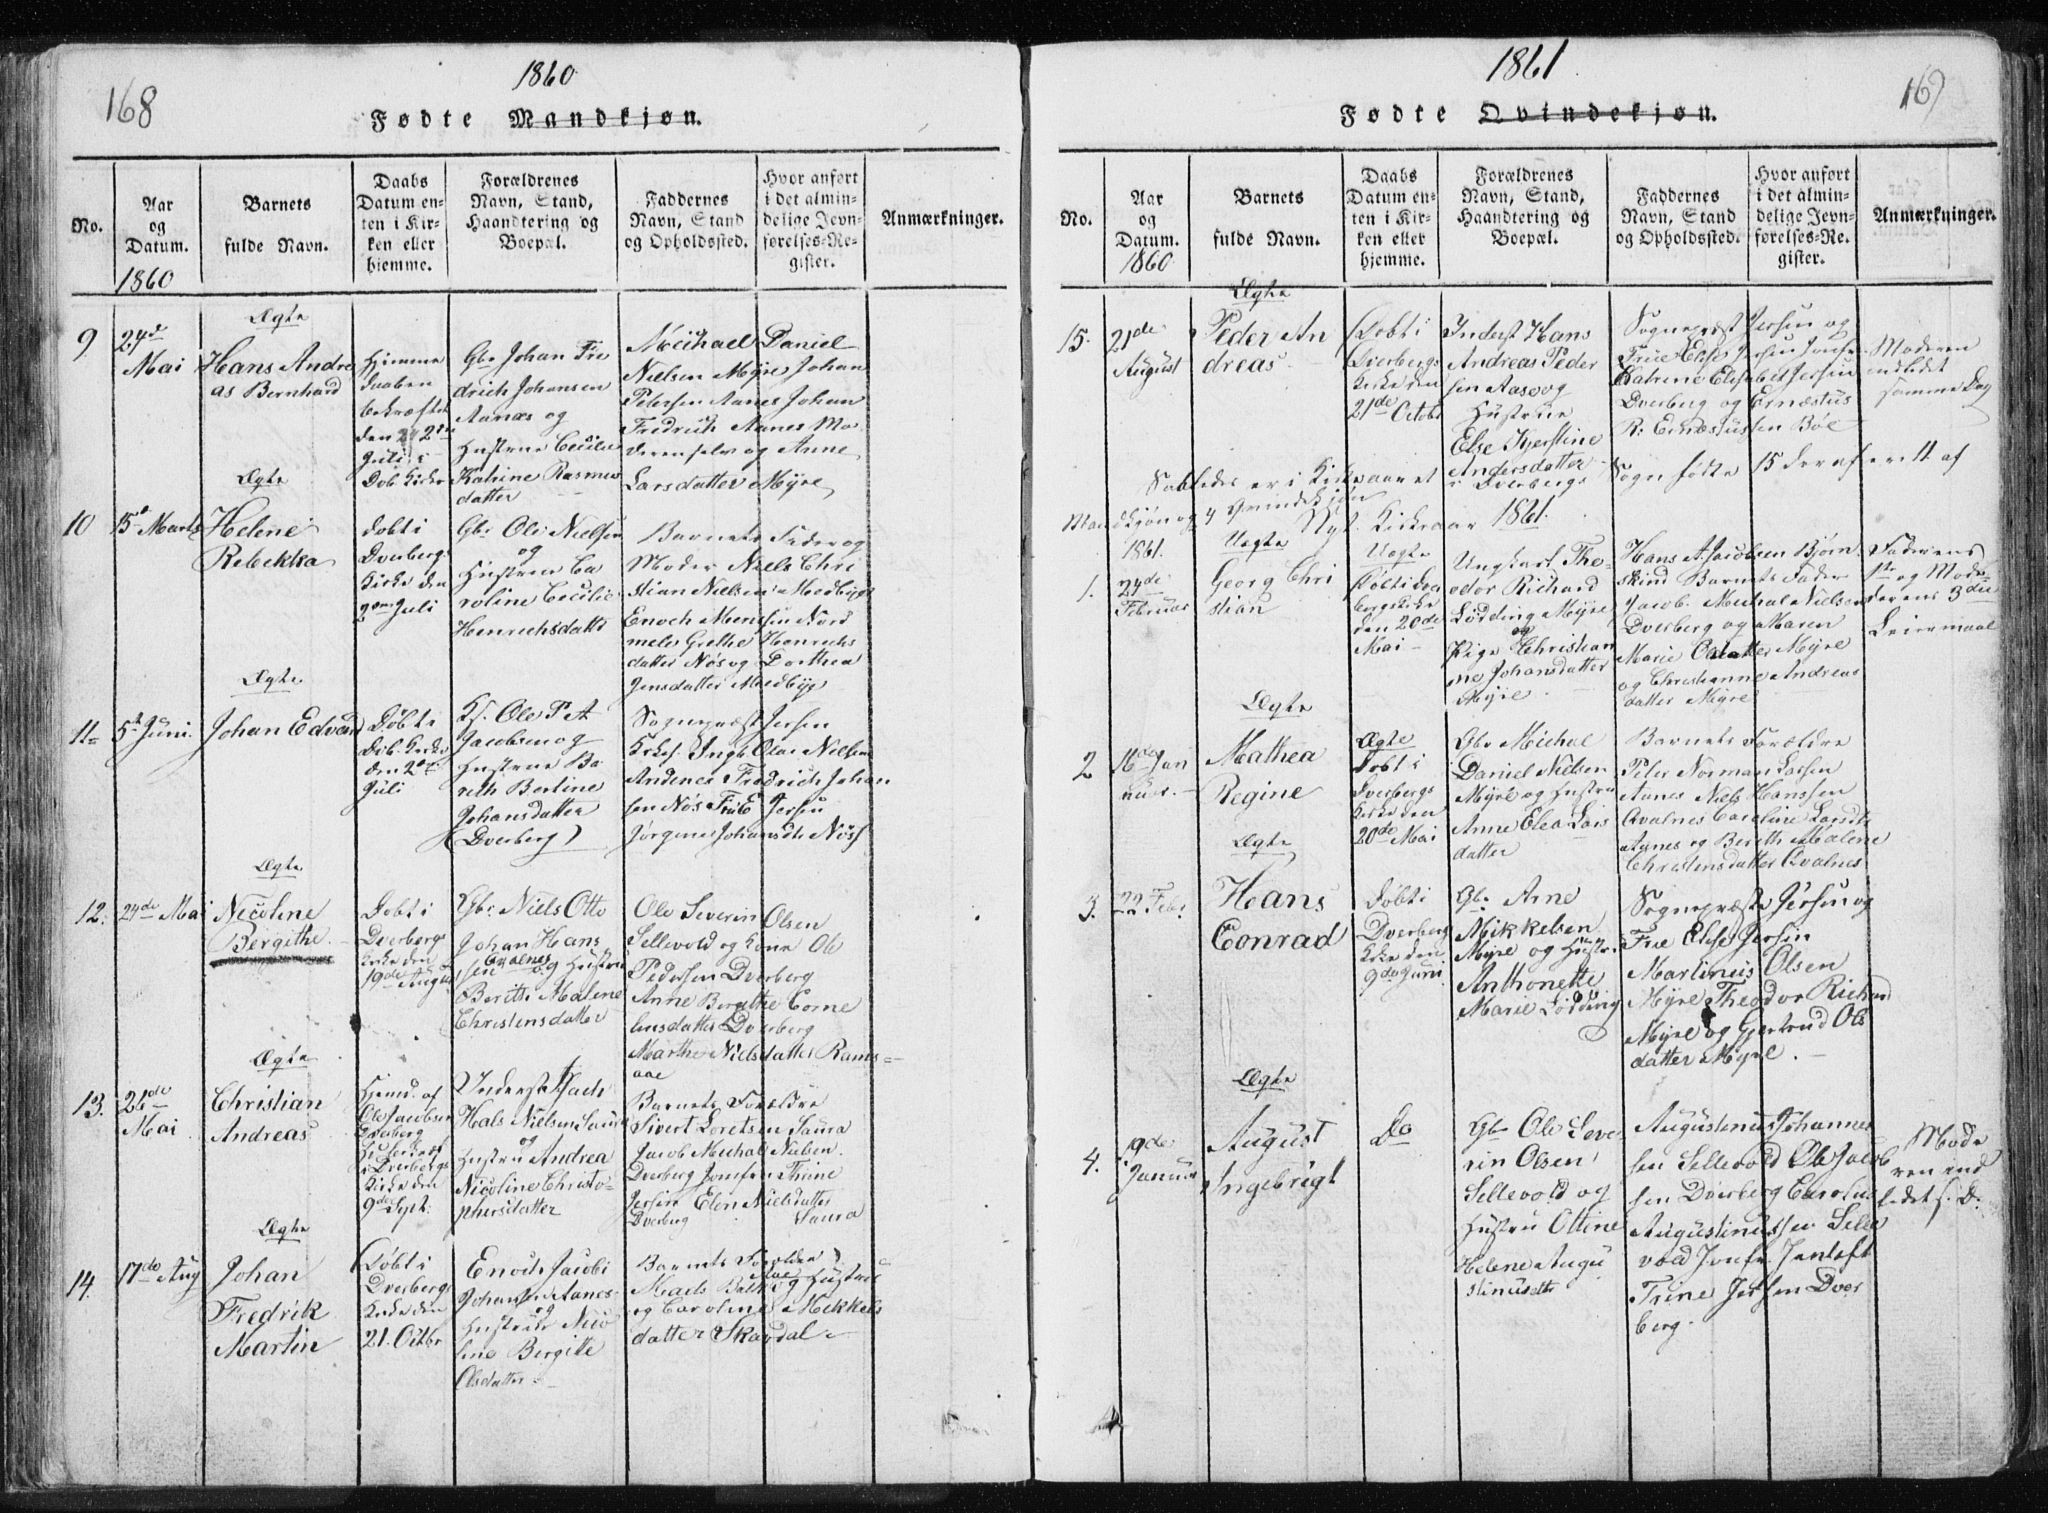 168
1860
Fødte Mandkjøn.
No.
Aar
og
Datum.
1860
Barnets
fulde Navn.
Daabs
Datum en-
ten i Kir-
ken eller
hjemme.
Forældrenes
Navn, Stand,
Haandtering og
Boepæl.
Faddernes
Navn, Stand
og Opholdssted.
Hvor anført
i det almin-
delige Jevn-
førelses-Re-
gister.
Anmærkninger.
9
24d
Mai
Ægte
Hans Andre
as Bernhard
Hjemme
daaben
bekræftet
den
Juli i
Dvb. Kirke
Gbr Johan Fre
drich Johansen
Aanæs og
Hustrue Cecilie
Katrine Rasmus
datter
Meichael Daniel
Nielsen Myre Johan
Petersen Aanes Johan
Fredrich Aanes Mo
deren selv og Anne
Larsdatter Myre
10
15d Marts
Ægte
Helene
Rebekka
Døbt i
Dverbergs
Kirke den
2den Juli
Gbr. Ole Nielsen
og
Hustrue Ca
roline Cecilie
Henrichsdatter
Barnets Fader og
Moder Niels Chri
stian Nielsen Medbye
Enoch Monsen Nord
mele Grethe Henrichs
datter Nøs og Dorthea
Jensdatter Medbye
11
5t Juni.
Ægte
Johan Edvard
Døbt i
Dvb. Kirke
den 2den
Juli
Ks. Ole P. A.
Jacobsen og
Hustrue Be
reth Bertine
Johansdatter
(Dverberg)
Sognepræst Jersin
Kirkes. Ingb Olai Nielsen
Andenes Fredrich Johan
sen Nøs Frue E Jersin
Jørgine Johansdtr Nøss
12.
24de Mai
Ægte
Nicoline
Bergithe
Døbt i
Dverbergs
Kirke den
19de August
Gbr. Niels Otto
Johan Hans
sen Avalnes og Hustrue
Berith Malene
Christensdatter
Ole Severin Olsen
Sellevold og Kone Ole
Pedersen Dverberg
Anne Bergithe Corne
liusdatter Dverberg
Marthe Nielsdatter Rams
aae
13.
21de
Mai
Ægte
Christian
Andreas
Hjemd. af
Ole Jacobsen
Dverberg
i Dverbergs
Kirke den
9de Sept.
Inderst Zach
Hals Nielsen Saura
og
Hustru Andrea
Nicoline Christo-
phersdatter
Barnets Forældre
Sivert Loretsen Saura
Jacob Michal Nielsen
Dverberg Jomfru Thrine
Jersin Elen Nielsdatter
Dverberg Saura
14.
17de Aug
Ægte
Johan
Fredrik
Martin
Døbt i
Dverbergs
Kirke den
21. Octbr
Enoch Jacobi
Johansen Aanes
og
Hustrue Nico
line Bergitte
Olsdatter
Barnets Forældre
Mads og Hustrue
og Caroline Mikkels
datter Skavdal
1861
169
Fødte Qvindekjøn.
No.
Aar
og
Datum.
1860
Barnets
fulde Navn.
Daabs
Datum en-
ten i Kir-
ken eller
hjemme.
Forældrenes
Navn, Stand,
Haandtering og
Boepæl.
Faddernes
Navn, Stand
og Opholdssted.
Hvor anført
i det almin-
delige Jevn-
førelses-Re-
gister.
Anmærkninger.
15.
21de
August
Ægte
Peder An
dreas
Døbt i
Dverbergs
Kirke den
21de Octobr
Inderst Hans
Andreas Peder
sen Aase og
Hustrue
Else Kjerstine
Andersdatter
Sognepræst Jersin og
Frue Elise Jersin Jomfr
Katrine Elisabet Jersin
Dverberg og Ernæstus
R. Ernæstussen Bøe
Moderen
indledet
samme Dag
Saaledes er i Kirkeaaret i Dverbergs Sogn fødte 15 deraf ere 11 af
Mandkjøn og 4 Qvindekjøn
Nyt Kirkeaar 1861.
1861.
1.
24de
Februar
Uægte
Georg Chri
stian
Uægte
Døbt i Dver
bergs Kirke
den 20de
Mai
Ungkarl The-
odor Richard
Lødding Myre
og
Pige Christian
ne Johansdatter
Myre
Hans A. Jacobsen Bjørn
skind Barnets Fader
Jacob Michal Nielsen
Dverberg og Maren
Marie Olsdatter Myre
og Christianne Andreas
datter Myre
Faderens
1ste og Mode-
derens 3die
Leiermaal
2
16de Jan
uar.
Ægte
Mathea
Regine
Ægte
Døbt i
Dverbergs
Kirke den
20de Mai
Gbr Michal
Daniel Nielsen
Myre og Hustru
Anne Elea Lars
datter
Barnets Forældre
Peter Norman Larsen
Aanes Niels Hanssen
Avalnes Caroline Larsdtr
Aanes og Berith Malene
Christensdatter Avalnes
3.
22 Febr
Ægte
Hans
Conrad
Døbt i
Dverberg
Kirke den
9de Juni
Gbr. Arne
Mikkelsen
Myre og Hustru
Anthonette
Marie Lødding
Sognepræst Jersin og
Frue Elise Jersin
Martinus Olsen
Myre Theodor Richard
Myre og Gjertrud Ols
datter Myre.
4.
19de
Januar
Ægte
August
Ingebrigt
Do
Gbr Ole Seve-
rin Olsen
Sellevold og
Hustru Ottine
Helene Augu
stinusdtr
Augustinus Johannes
sen Sellevold Ole Jacob
sen Dverberg Carolus
Augustinussen Selle
vold Jomfr. Jentoft
Trine Jersen Dver
berg.
Mode
ren ind
ledet s. D.